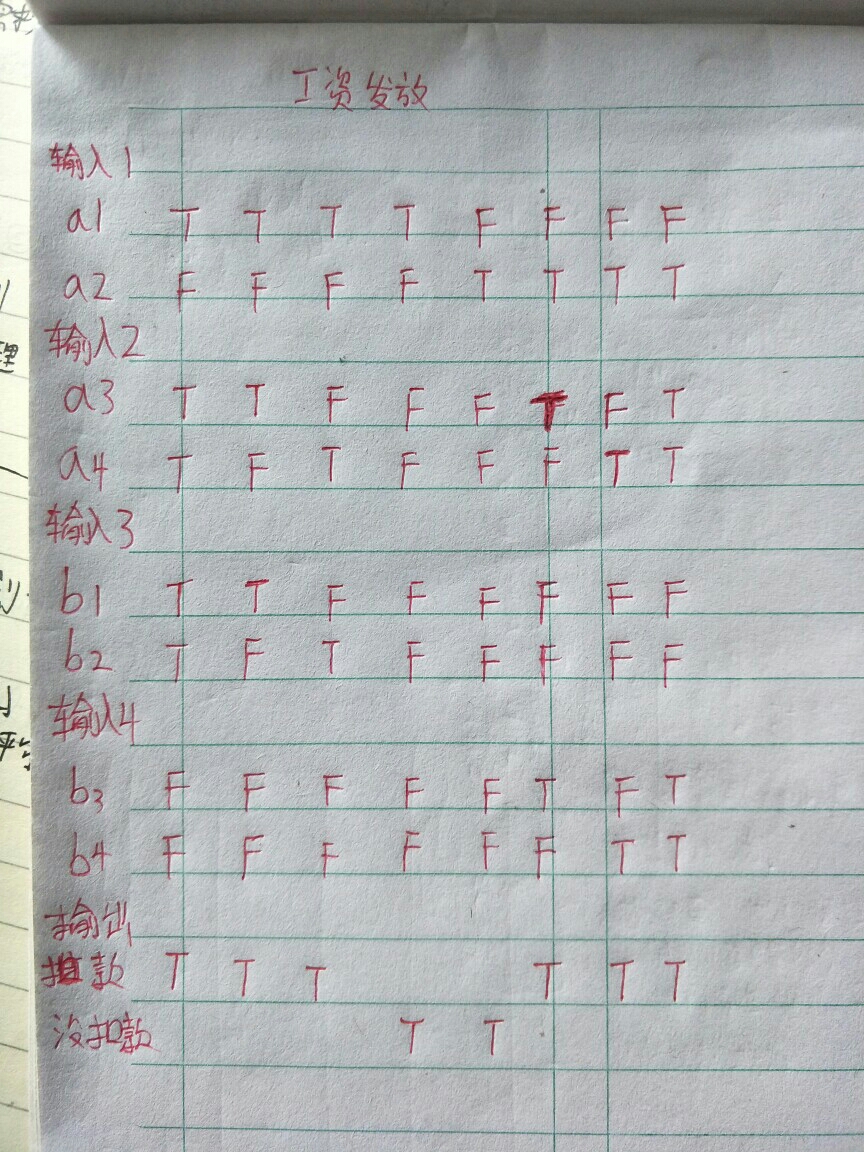 工资发放
输入1
a1 T T T T F F F F
a2 F F F F T T T T
输入2
a3 T T F F F T F T
a4 T F T F F F T T
输入3
b1 T T F F F F F F
b2 T F T F F F F F
输入4
b3 F F F F F T F T
b4 F F F F F F T T
输出
扣款 T T T T T T
没扣款 T T
理